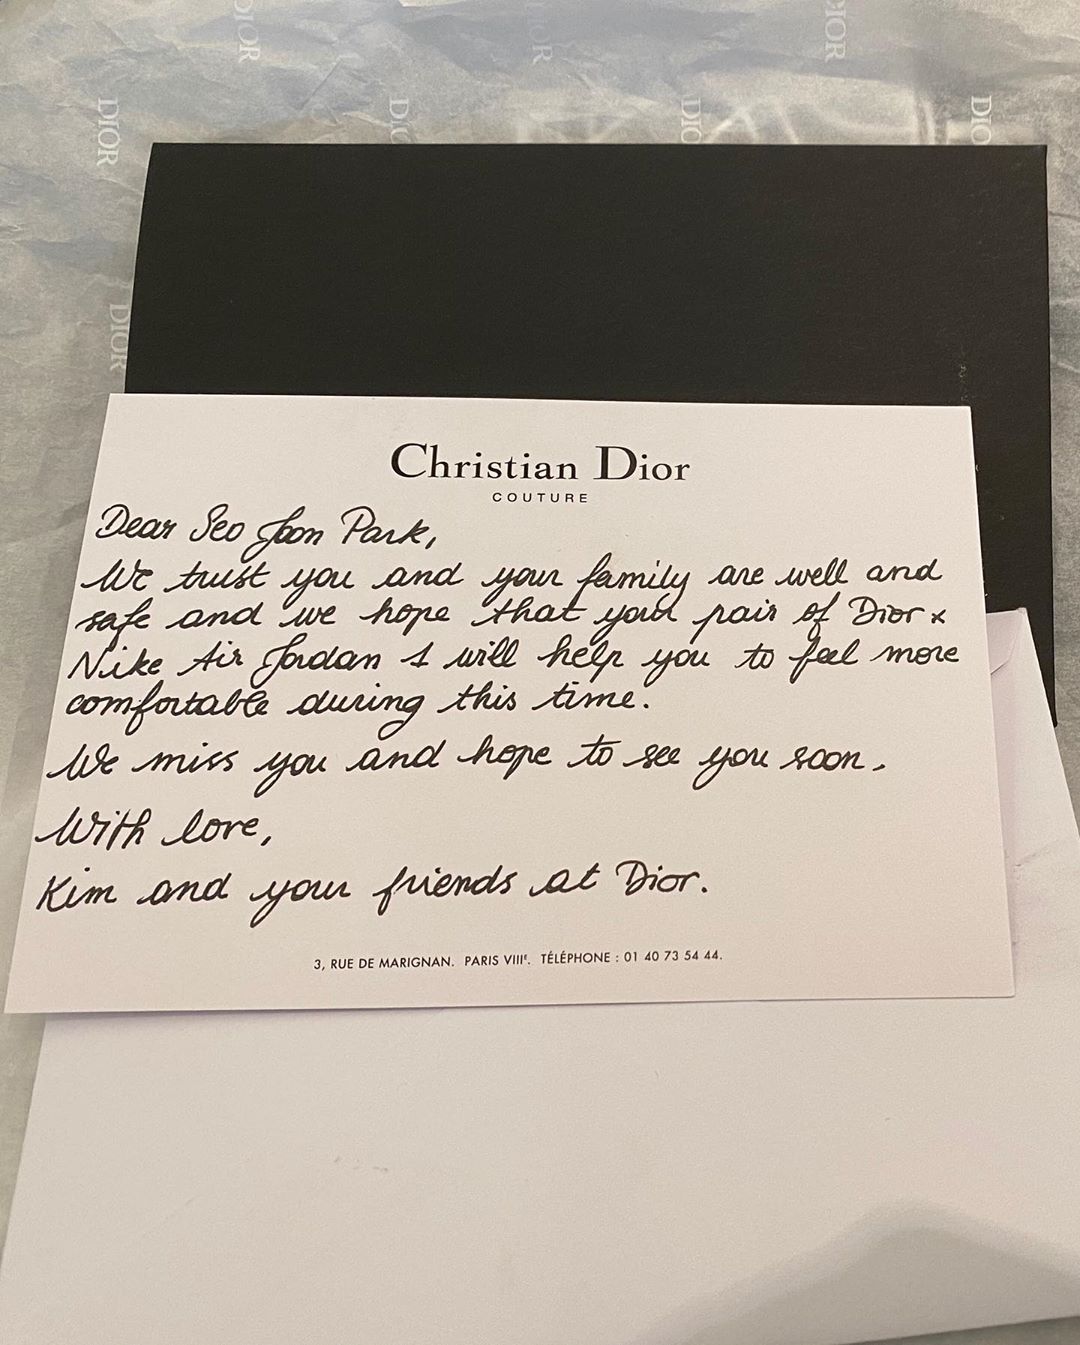 DIOR
DIOR
DIOR
DIOR
DIOR
DIOR
DIOR
DIOR
Christian Dior
COUTURE
Dear Seo Joon Park,
We trust you and your family are well and
safe and we hope that your pair of Dior x
Nike Air Jordan 1 will help you to feel more
comfortable during this time.
We miss you and hope to see you soon.
With love,
Kim and your friends at Dior.
3, RUE DE MARIGNAN. PARIS VIIIᵉ. TÉLÉPHONE : 01 40 73 54 44.